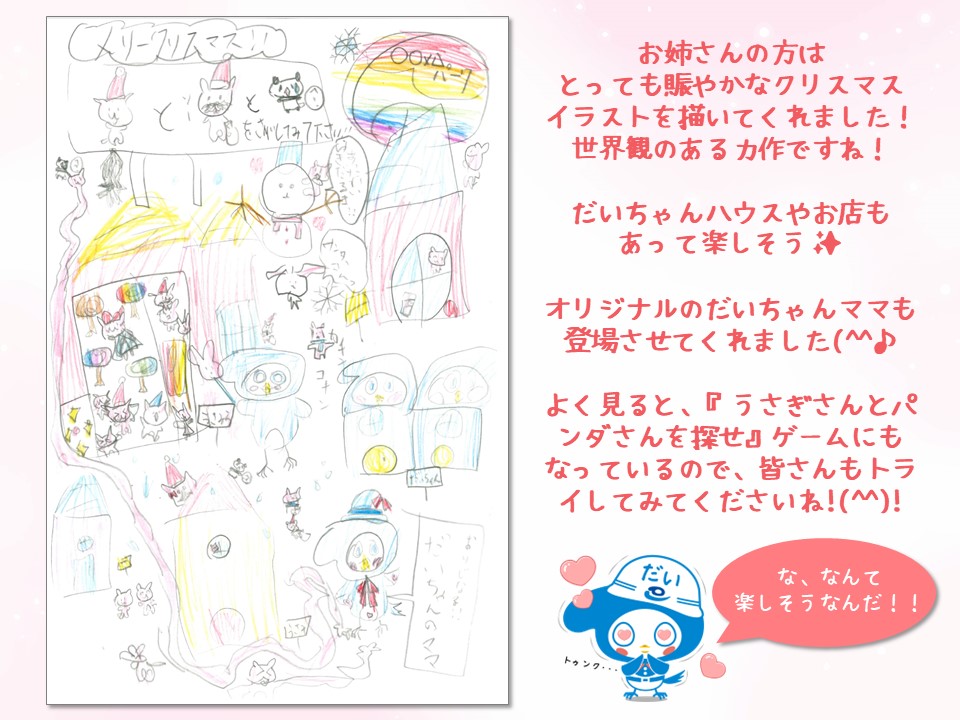 メリークリスマス!!
〇〇×△パーク
と
と
をさがしてみて下さい!!
お姉さんの方は
とっても賑やかなクリスマス
イラストを描いてくれました!
世界観のある力作ですね!
だいちゃんハウスやお店も
あって楽しそう✨
オリジナルのだいちゃんママも
登場させてくれました(^^♪
よく見ると、『うさぎさんとパ
ンダさんを探せ』ゲームにも
なっているので、皆さんもトラ
イしてみてくださいね!(^^)!
だいちゃんのママ
だい
な、なんて
楽しそうなんだ!!
トゥンク...